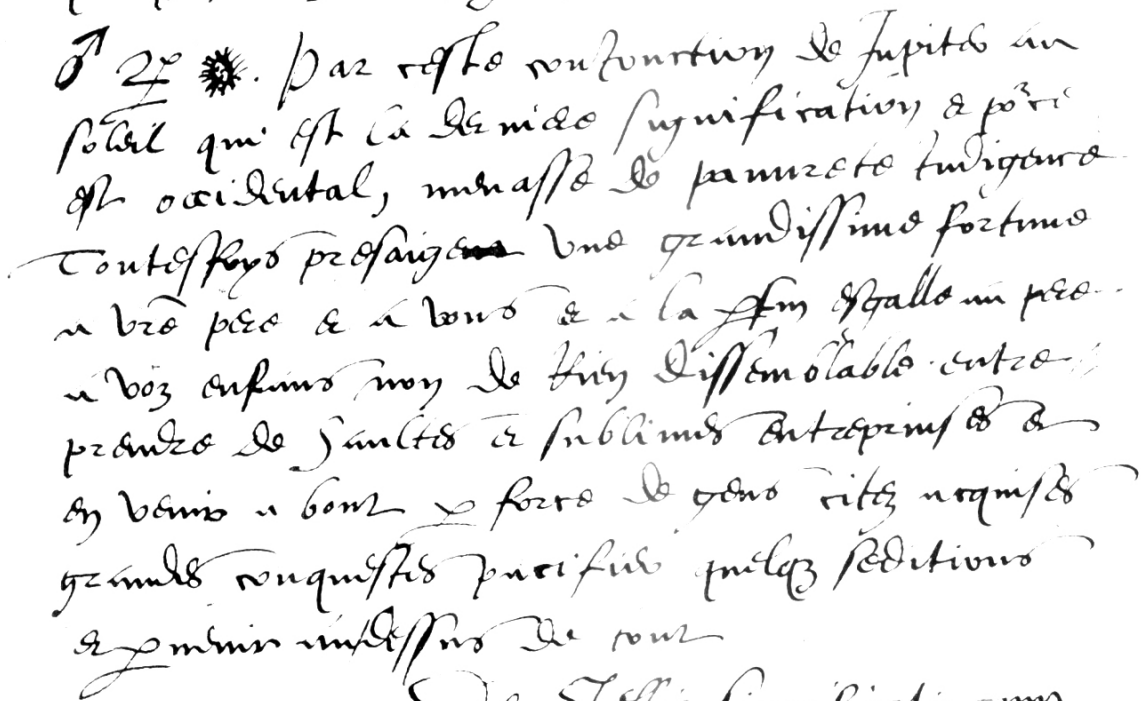 ♂ ♃ ☼. Par ceste conionction de Jupiter au
soleil qui est la derniere signification & po.ce
est occidental, menasse de pauurete indigence
Toutesfoys presaige une grandissime fortune
a vre pere & a vous & a la fin esgalle au pere
a voz enfans non de Rien dissemblable entre
prendre de haultes & sublimes entreprinses &
en venir a bout p force de gens citez acquises
grandes conquestes pacifier quelqz seditions
& pvenir audessus de tout